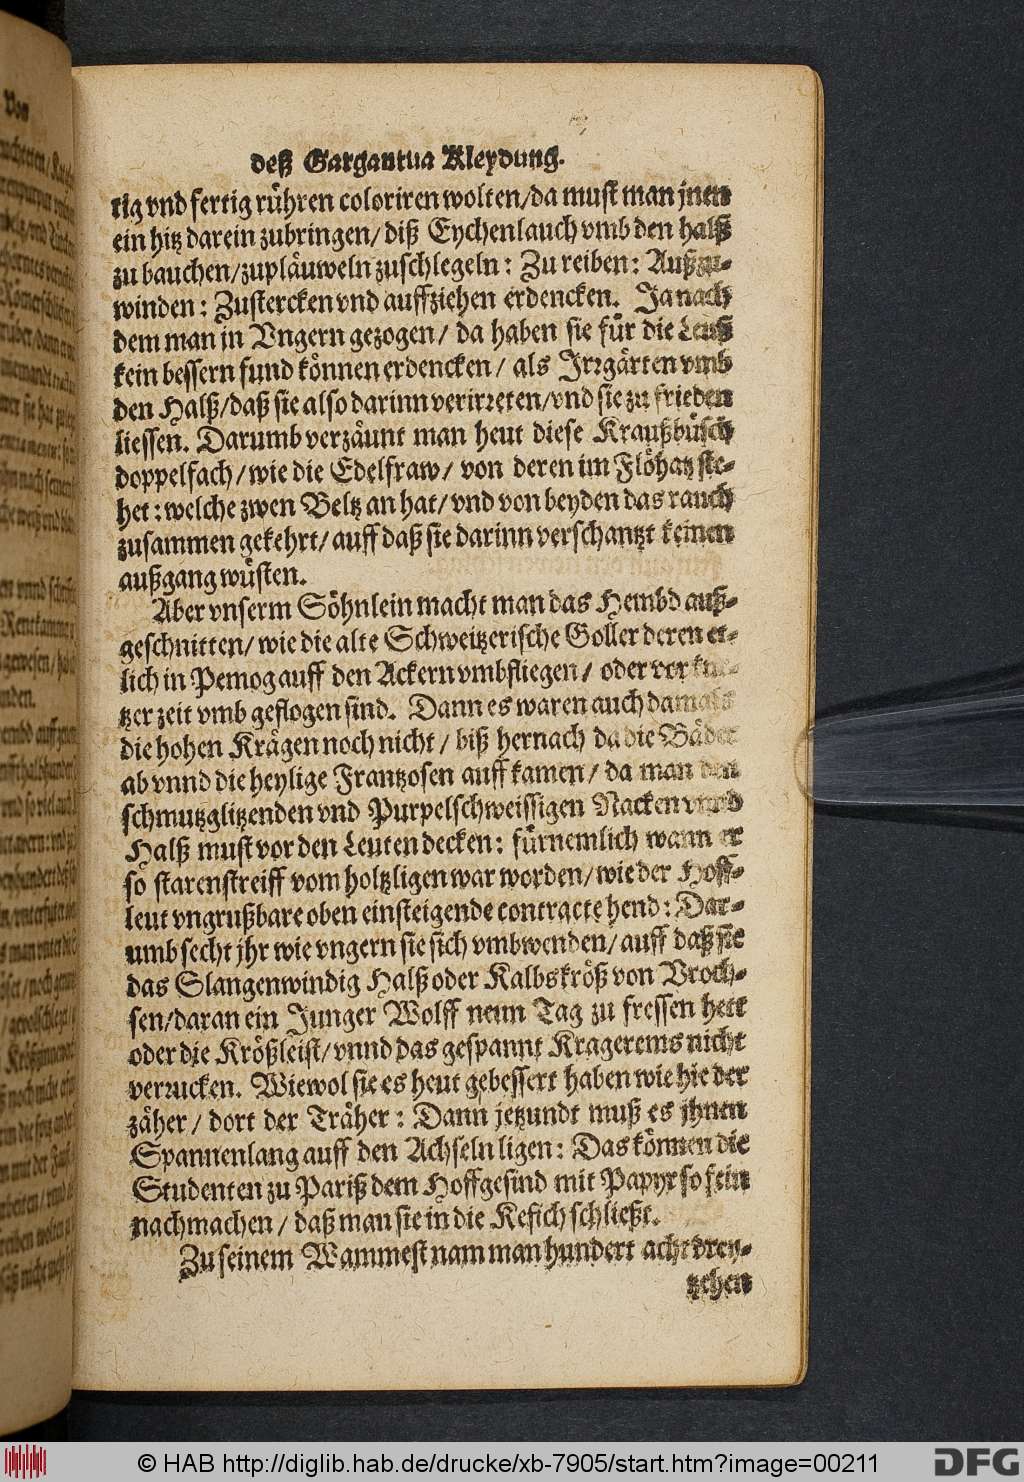 deß Gargantua Kleydung.
tig vnd fertig rühren coloriren wolten/da must man jnen
ein hitz darein zubringen/ diß Eychenlauch vmb den halß
zu bauchen/zupläuweln zuschlegeln: Zu reiben: Außzu-
winden: Zustercken vnd auffziehen erdencken. Ja nach
dem man in Vngern gezogen/ da haben sie für die Leuß
kein bessern fund können erdencken/ als Irrgärten vmb
den Halß/daß sie also darinn verirreten/vnd sie zu frieden
liessen. Darumb verzäunt man heut diese Kraußbüsch
doppelfach/wie die Edelfraw/ von deren im Flöhatz ste-
het: welche zwen Beltz an hat/vnd von beyden das rauch
zusammen gekehrt/ auff daß sie darinn verschantzt keinen
außgang wüsten.
Aber vnserm Söhnlein macht man das Hembd auß-
geschnitten/ wie die alte Schweitzerische Goller deren et-
lich in Pemog auff den Ackern vmbfliegen/ oder vor kur-
tzer zeit vmb geflogen sind. Dann es waren auch damals
die hohen Krägen noch nicht/ biß hernach da die Bäder
ab vnnd die heylige Frantzosen auff kamen/ da man den
schmutzglitzenden vnd Purpelschweissigen Nacken vnnd
Halß must vor den Leuten decken: fürnemlich wann er
so starenstreiff vom holtzligen war worden/wie der Hoff-
leut vngrußbare oben einsteigende contracte hend: Dar-
umb secht jhr wie vngern sie sich vmbwenden/ auff daß sie
das Slangenwindig Halß oder Kalbskröß von Vroch-
sen/daran ein Junger Wolff neun Tag zu fressen hett
oder die Krößleist/vnnd das gespannt Kragerems nicht
verrucken. Wiewol sie es heut gebessert haben wie hie der
zäher/ dort der Träher: Dann jetzundt muß es jhnen
Spannenlang auff den Achseln ligen: Das können die
Studenten zu Pariß dem Hoffgesind mit Papyr so fein
nachmachen/ daß man sie in die Kefich schließt.
Zu seinem Wammest nam man hundert acht drey-
tzehen
© HAB http://diglib.hab.de/drucke/xb-7905/start.htm?image=00211
DFG